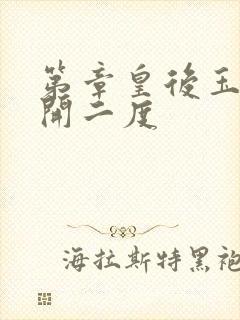 第章皇後玉
開二度
海拉斯特黑袍